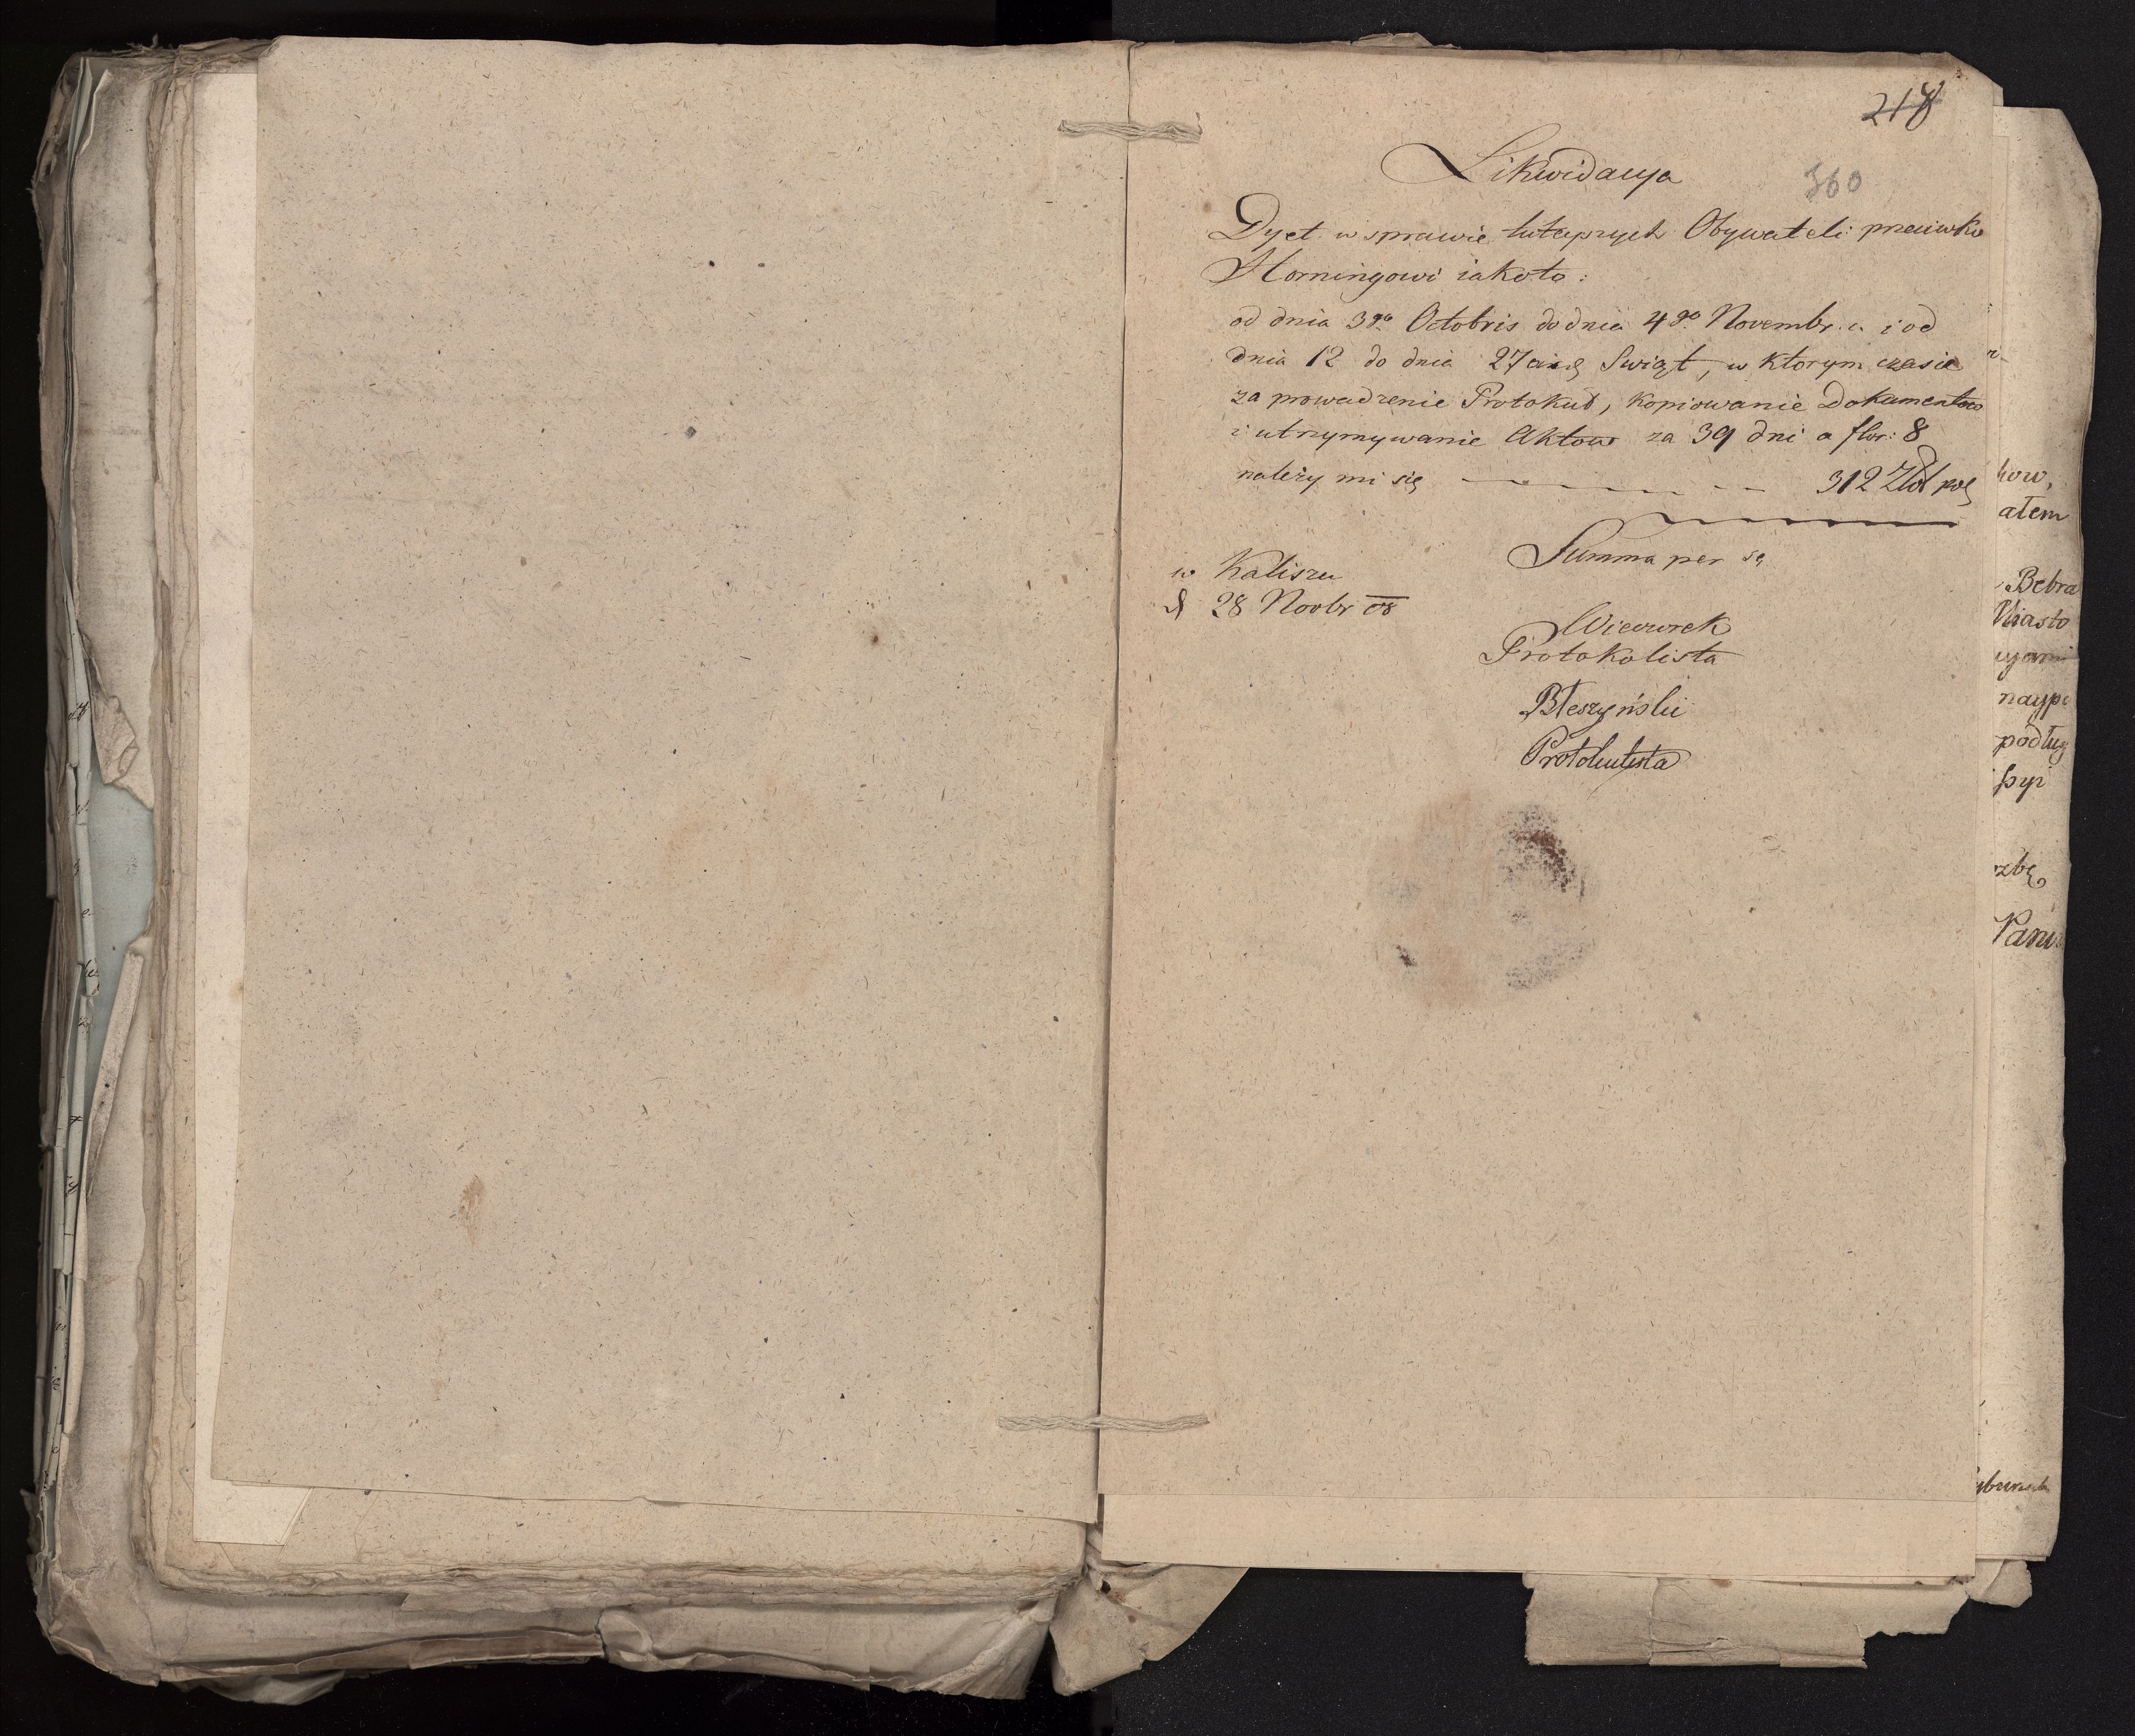 218
360
Likwidacya
Dyet w sprawie tuteyszych Obywateli przeciwko
Horningowi iakoto:
od dnia 3go Octobris do dnia 4go Novembr. c. i od
dnia 12 do dnia 27 Swiąt, w ktorym czasie
za prowadzenie Protokuł, kopiowanie Dokumentow
i utrzymywanie Aktow za 39 dni a flor: 8
należy mi się 312 Zło pol
Summa per se
w Kaliszu
d 28 Novbr 08
Wieczorek
Protokolista
Błeszyński
Protokulista
how,
ałem
Bebra
Miasto
cyami
naype
podług
szyi
zbę
Panu